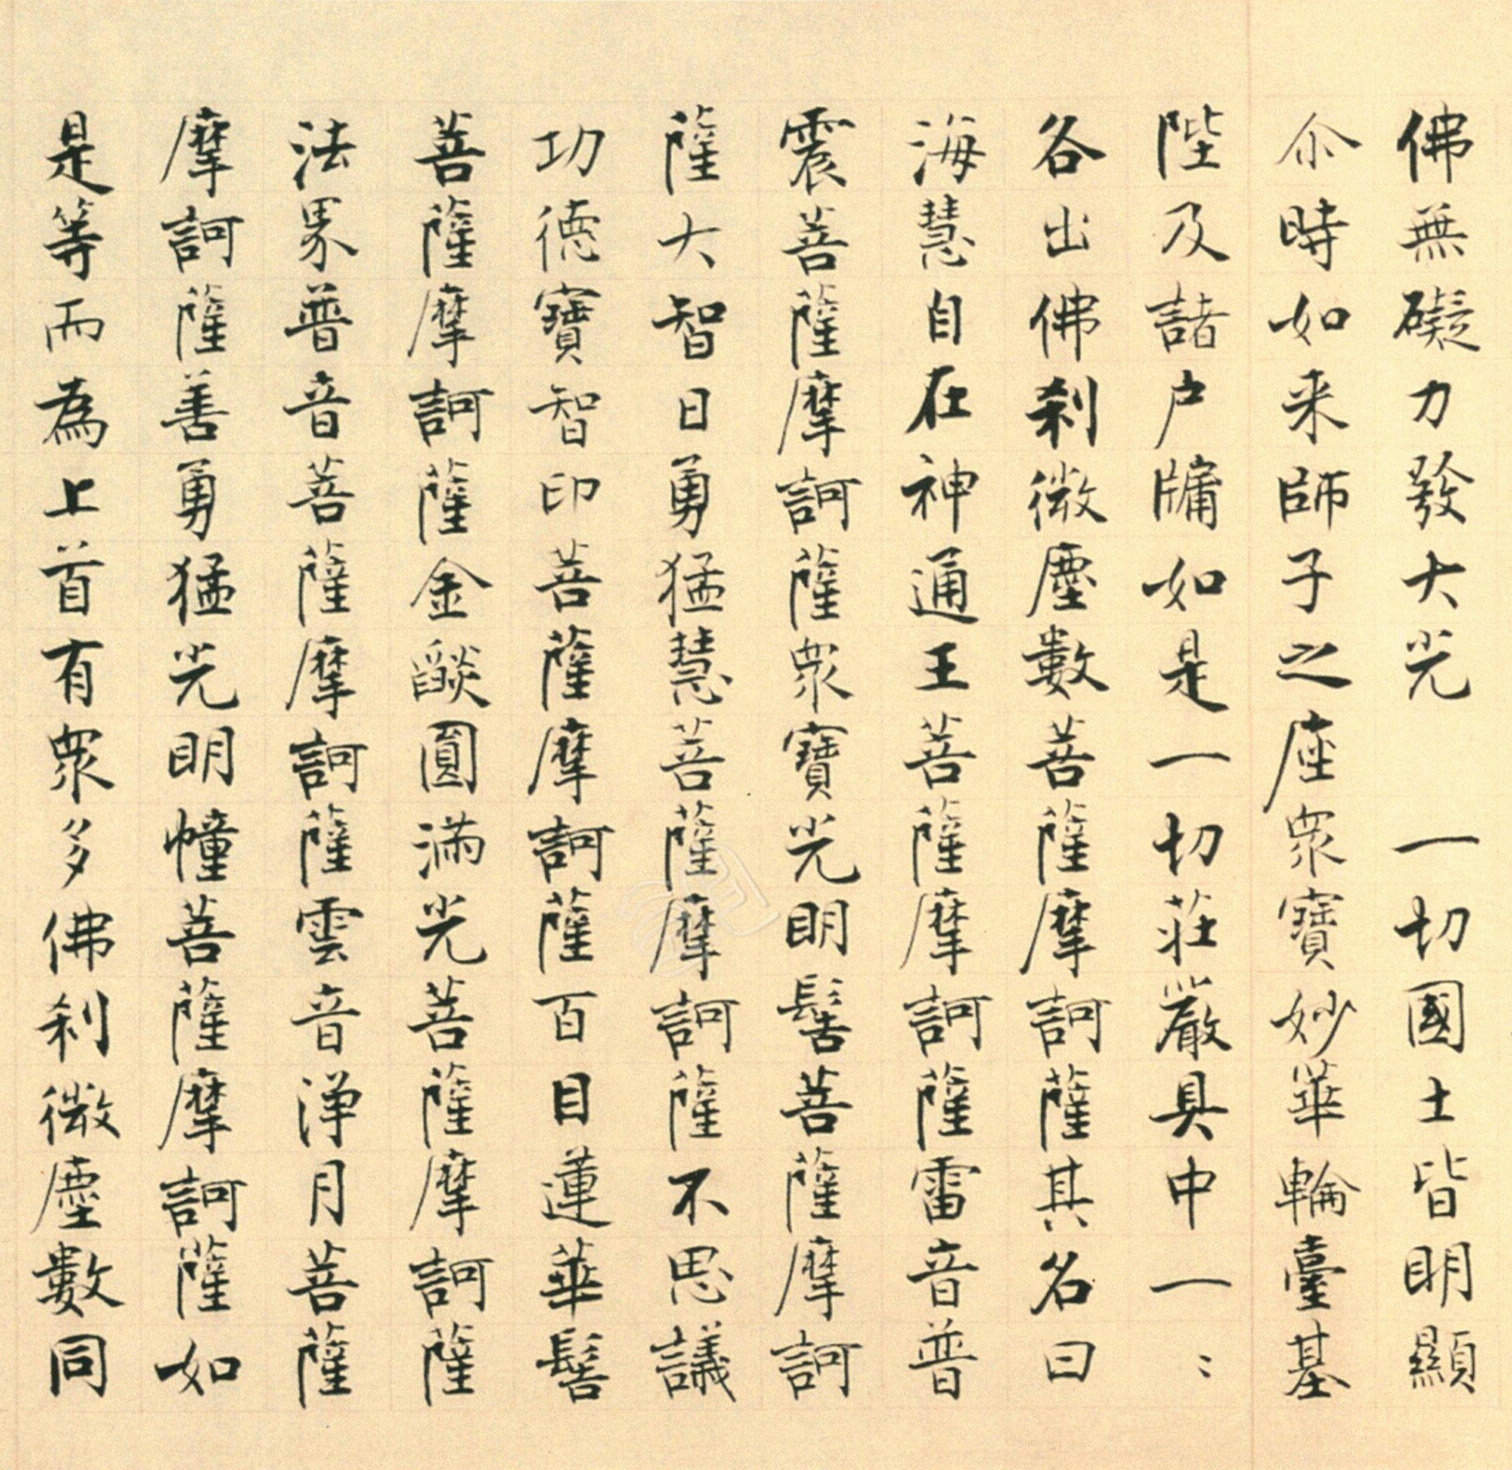 佛無礙力發大光　一切國土皆明顯
尒時如来師子之座衆寶妙華輪臺基
陛及諸户牖如是一切莊嚴具中一〻
各出佛刹微塵數菩薩摩訶薩其名曰
海慧自在神通王菩薩摩訶薩雷音普
震菩薩摩訶薩衆寶光明髻菩薩摩訶
薩大智日勇猛慧菩薩摩訶薩不思議
功德寶智印菩薩摩訶薩百目蓮華髻
菩薩摩訶薩金燄圓滿光菩薩摩訶薩
法界普音菩薩摩訶薩雲音淨月菩薩
摩訶薩善勇猛光明幢菩薩摩訶薩如
是等而為上首有衆多佛刹微塵數同